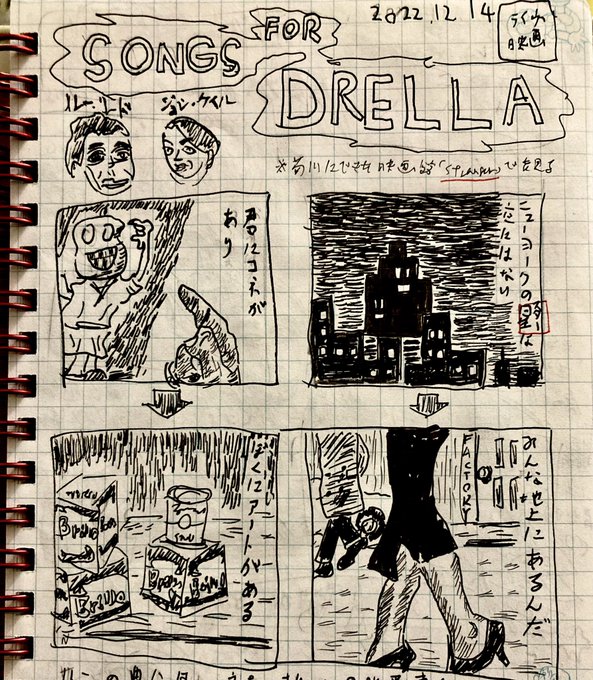 2022.12 14
ライヴ
映画
SONGS
FOR
DRELLA
ルー・リード
ジョン・ケイル
※菊川にできた映画館「Stranger」で見る
ニューヨークの星は
スター
空にはない
みんな地上にあるんだ
FACTORY
君にコネが
あり
ぼくにアートがある
Brillo
Brillo
Brillo
Brillo